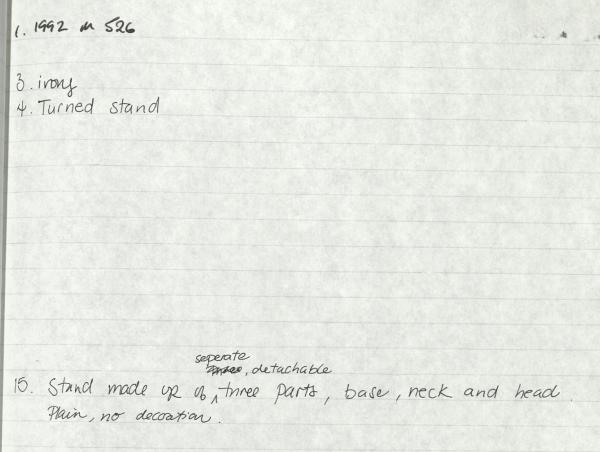 1. 1992 M 526
3. ivory
4. Turned stand
seperate
, detachable
15. Stand made up of ^ three parts, base, neck and head.
Plain, no decoration.